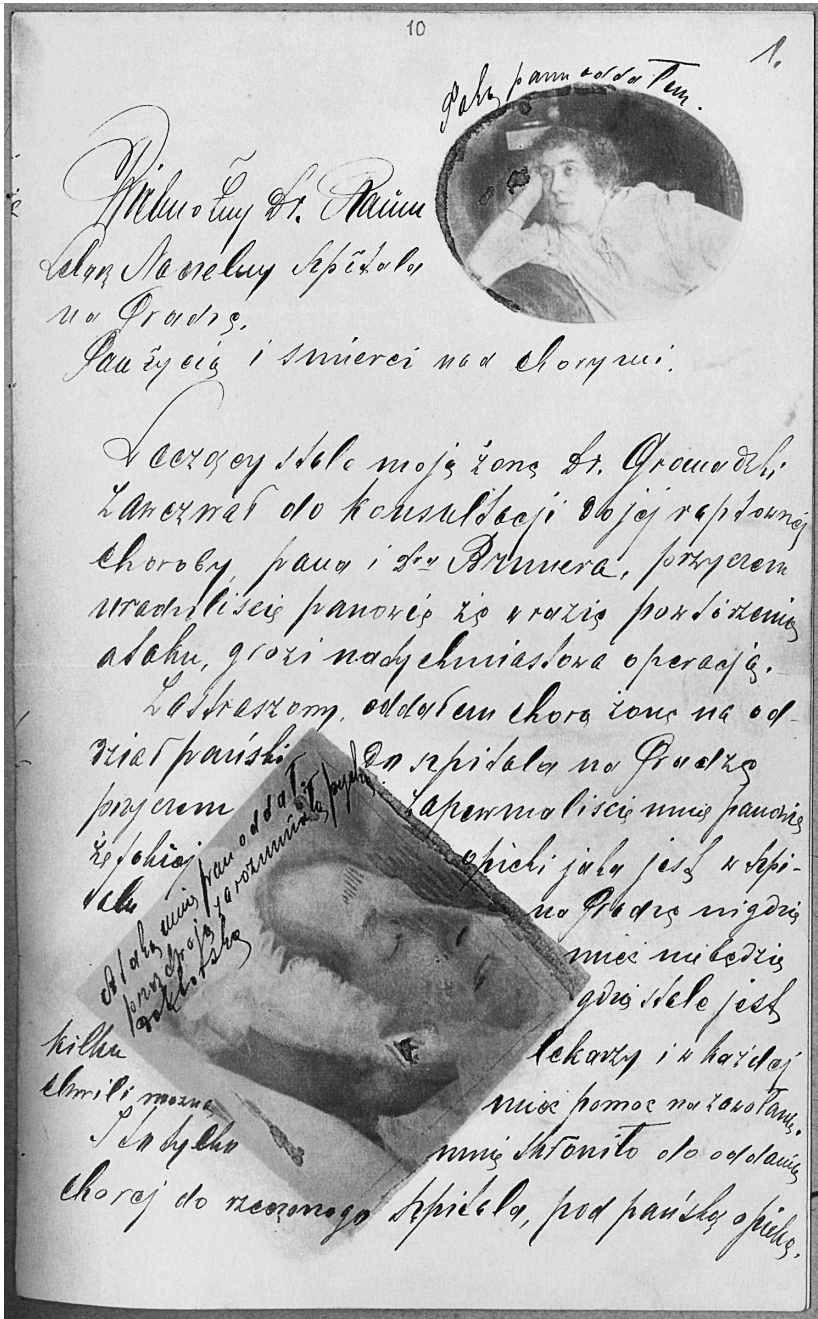 10
1.
Taką panu oddałem.
Wielmożny Dr. Raum
Lekarz Naczelny Szpitala
na Pradze.
Pan życia i śmierci nad chorymi.
Leczący stale moją żonę Dr. Gromadzki
zawezwał do konsultacji do jej raptownej
choroby, pana i dra Brunera, przyczem
uradziliście panowie że w razie powtórzenia
ataku, grozi natychmiastowa operacja.
Zastraszony, oddałem chorą żonę na od-
dział pański do szpitala na Pradze
przyczem zapewnialiście mnie panowie
że takiej opieki jaka jest w szpi-
talu na Pradze nigdzie
mieć nie będzie
gdzie stale jest
kilku lekarzy i w każdej
chwili można mieć pomoc na zawołanie.
I to tylko mnie skłoniło do oddania
chorej do rzeczonego szpitala, pod pańską opiekę.
A taką mnie pan oddał
przez swoją zarozumiałą pychę
doktorską